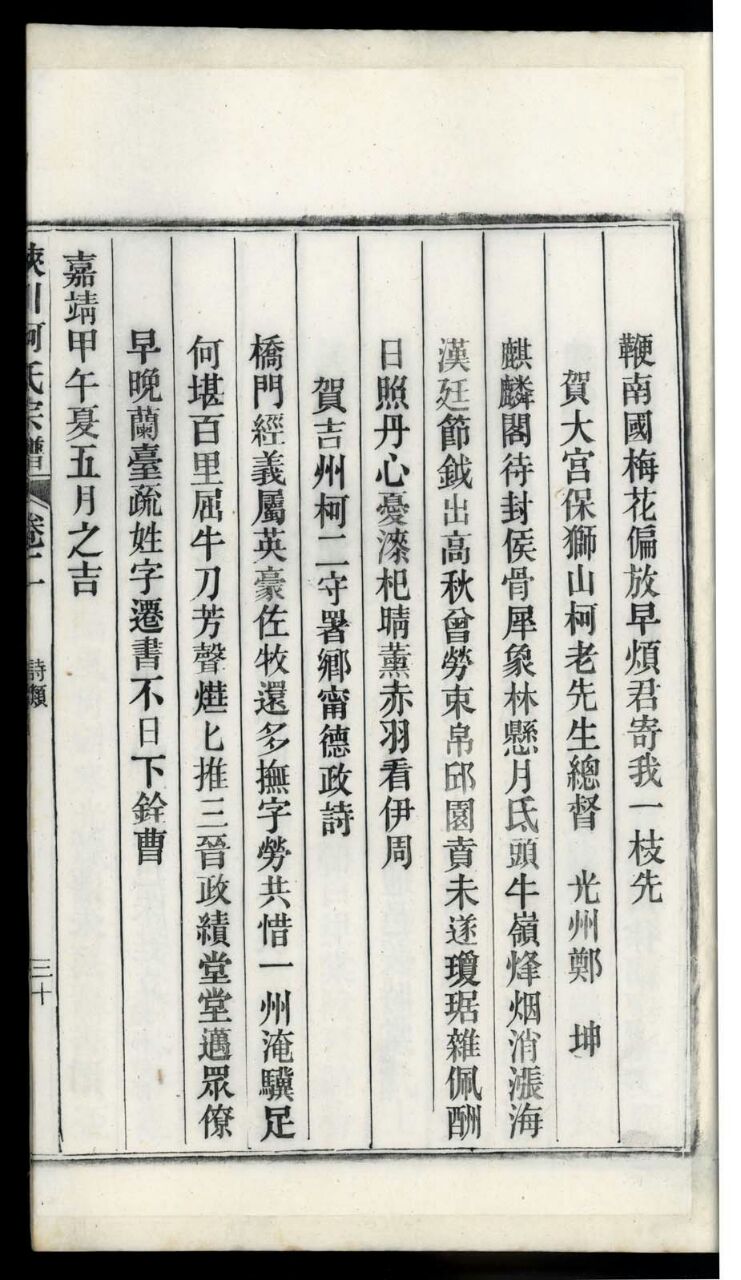 鞭南國梅花偏放早煩君寄我一枝先
賀大宮保獅山柯老先生總督　光州鄭　坤
麒麟閣待封侯骨犀象林懸月氐頭牛嶺烽烟消漲海
漢廷節鉞出高秋曾勞束帛邱園賁未遂瓊琚雜佩酬
日照丹心憂漆杞晴薰赤羽看伊周
賀吉州柯二守署鄉甯德政詩
橋門經義屬英豪佐牧還多撫字勞共惜一州淹驥足
何堪百里屈牛刀芳聲燁匕推三晉政績堂堂邁眾僚
早晚蘭臺疏姓字遷書不日下銓曹
嘉靖甲午夏五月之吉
川柯氏宗譜　卷二　詩類　三十